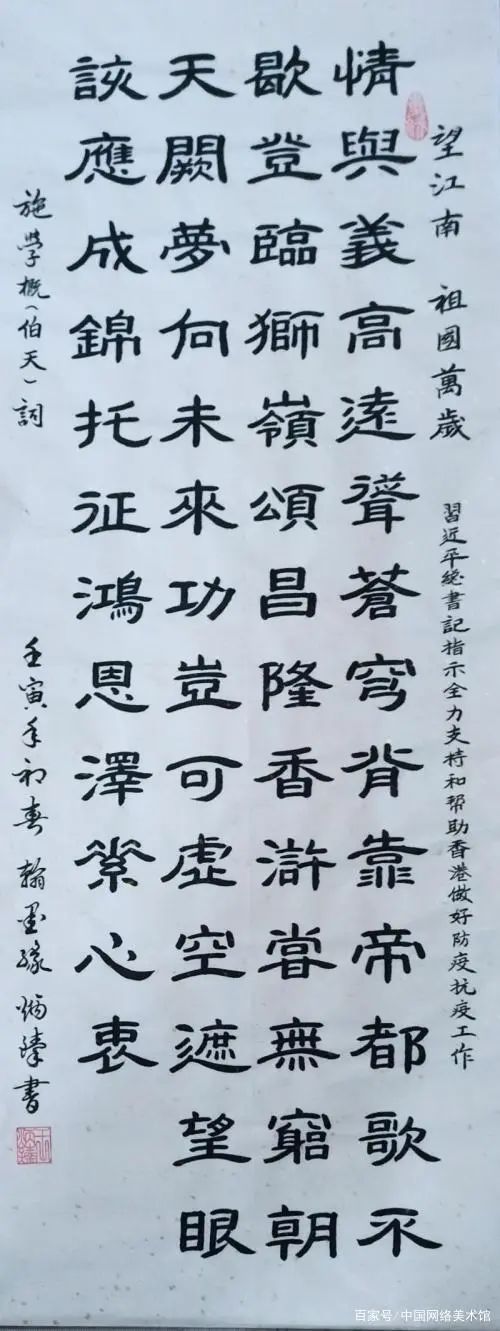 望江南 祖國萬歲 習近平總書記指示全力支持和幫助香港做好防疫抗疫工作
情與義高遠聳蒼穹背靠帝都歌不
歇登臨獅嶺頌昌隆香滸嘗無窮朝
天闕夢向未來功豈可虛空遮望眼
該應成錦托征鴻恩澤縈心衷
施學概(伯天)詞
壬寅年初春翰墨緣炳臻書
百家号/中国网络美术馆